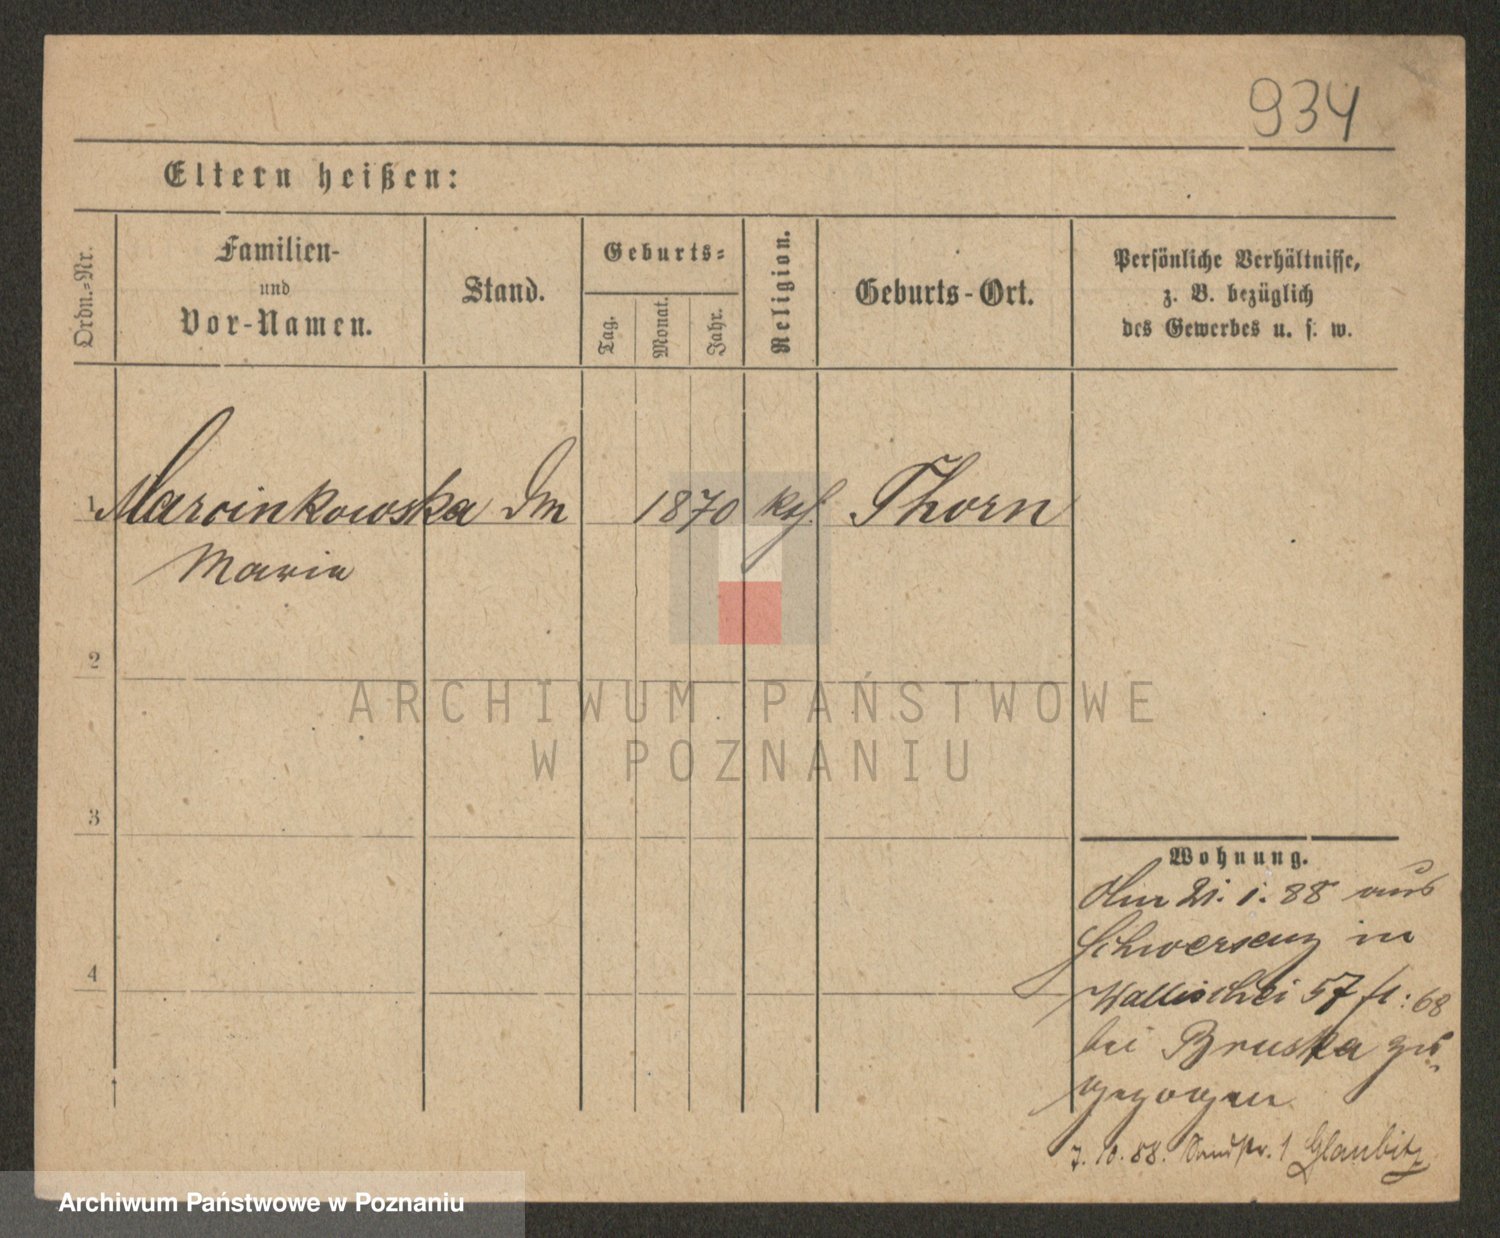 934
Eltern heißen:
Ordn.=Nr.
Familien-
und
Vor-Namen.
Stand.
Geburts=
Tag.
Monat.
Jahr.
Religion.
Geburts-Ort.
Persönliche Verhältnisse,
z. B. bezüglich
des Gewerbes u. s. w.
1 Marcinkowska Dm 1870 kth. Thorn
Maria
2
ARCHIWUM PAŃSTWOWE
W POZNANIU
3
Wohnung.
Am 21. 1. 88 aus
Schwersenz in
4
Wallischei 57 fl: 68
bei Bruska zu=
gezogen
7. 10. 88. 1 Glaubitz
Archiwum Państwowe w Poznaniu